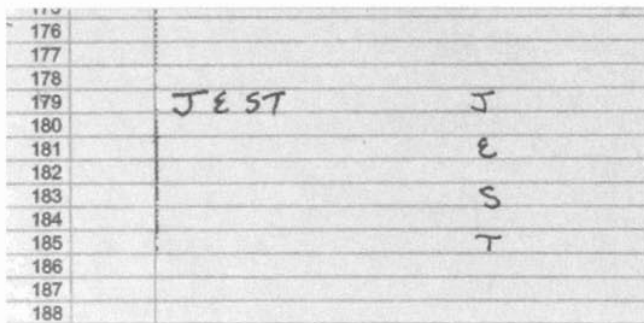 176
177
178
179 JEST J
180
181 E
182
183 S
184
185 T
186
187
188